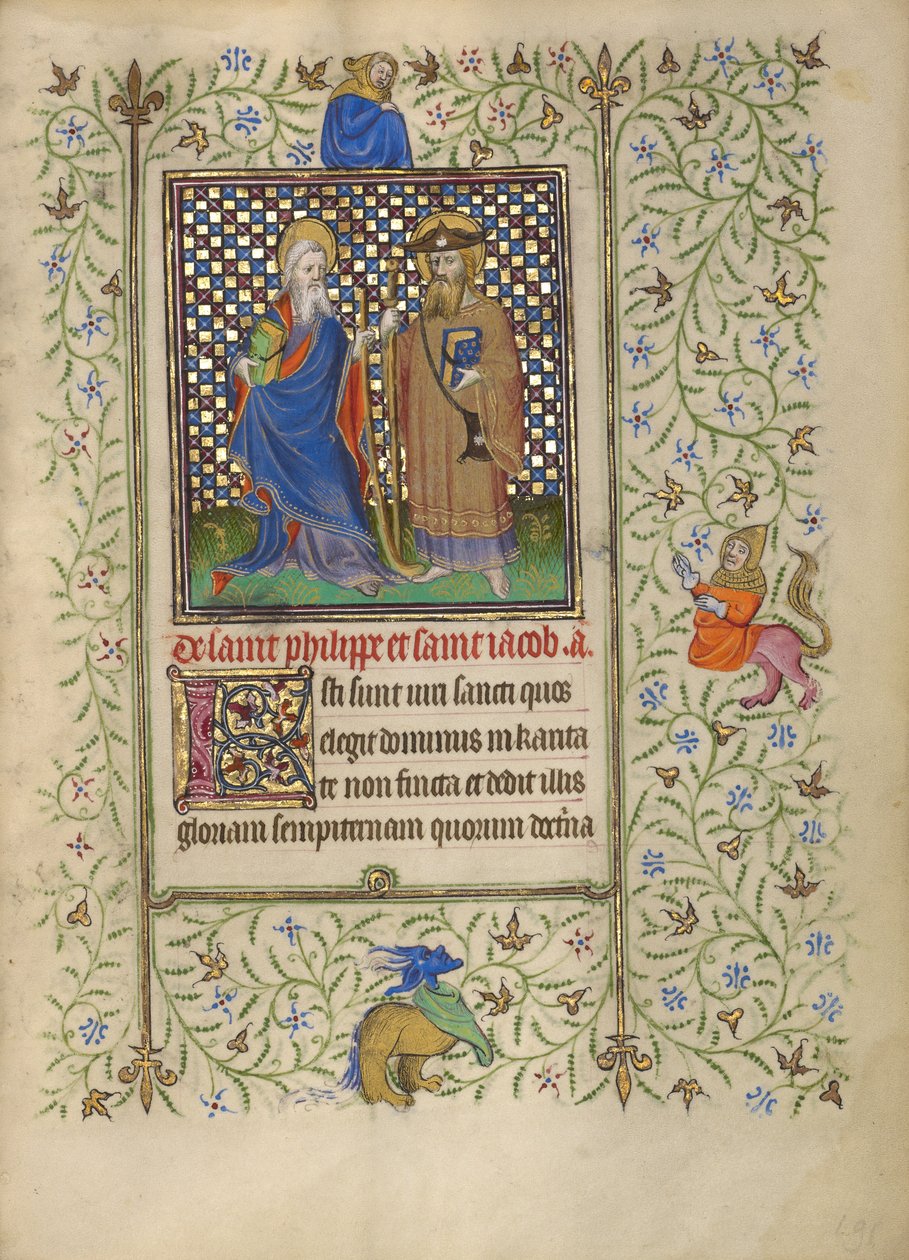 De saint phelippe et saint iacob .a.
Isti sunt uiri sancti quos
elegit dominus in karita
te non fincta et dedit illis
gloriam sempiternam quorum doctr̃na